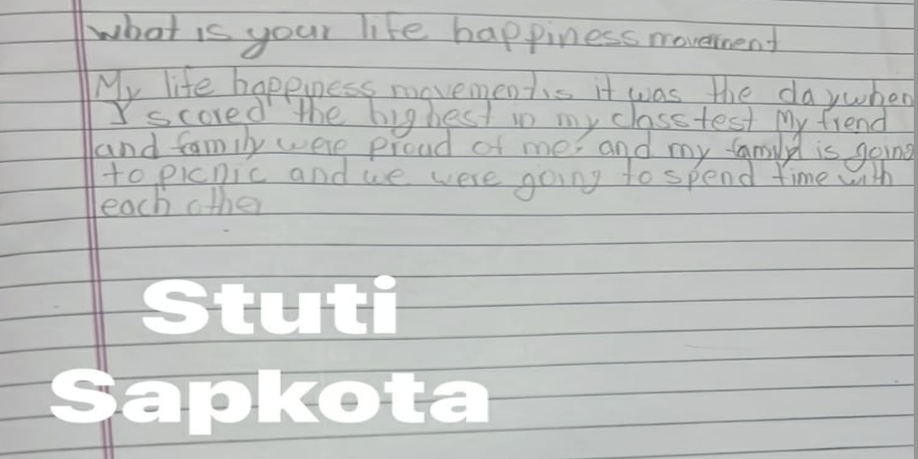 what is your life happiness movement
My life happiness movement is it was the day when
I scored the highest in my class test My friend
and family were proud of me. and my family is going
to picnic and we were going to spend time with
each other
Stuti
Sapkota